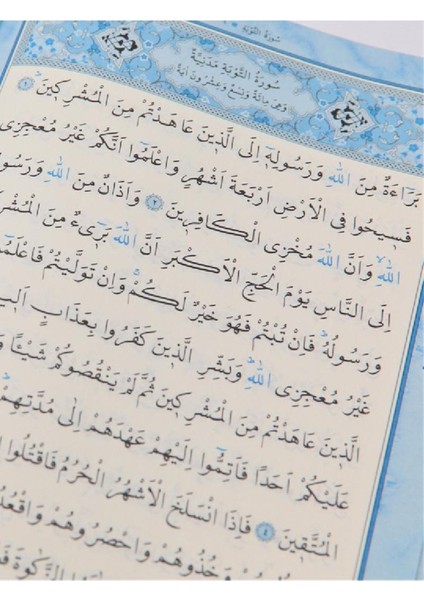 سُورَةُ التَّوْبَةِ
سُورَةُ التَّوْبَةِ مَدَنِيَّةٌ
وَهِيَ مِائَةٌ وَتِسْعٌ وَعِشْرُونَ اٰيَةً
بَرَٓاءَةٌ مِنَ اللّٰهِ وَرَسُولِهٖٓ اِلَى الَّذٖينَ عَاهَدْتُمْ مِنَ الْمُشْرِكٖينَ ١
فَسٖيحُوا فِى الْاَرْضِ اَرْبَعَةَ اَشْهُرٍ وَاعْلَمُٓوا اَنَّكُمْ غَيْرُ مُعْجِزِى
اللّٰهِ وَاَنَّ اللّٰهَ مُخْزِى الْكَافِرٖينَ ٢ وَاَذَانٌ مِنَ اللّٰهِ وَرَسُو
اِلَى النَّاسِ يَوْمَ الْحَجِّ الْاَكْبَرِ اَنَّ اللّٰهَ بَرٖٓىءٌ مِنَ الْمُشْرِ
وَرَسُولُهُ فَاِنْ تُبْتُمْ فَهُوَ خَيْرٌ لَكُمْ وَاِنْ تَوَلَّيْتُمْ فَاعْلَمُ
غَيْرُ مُعْجِزِى اللّٰهِ وَبَشِّرِ الَّذٖينَ كَفَرُوا بِعَذَابٍ اَلٖي
الَّذٖينَ عَاهَدْتُمْ مِنَ الْمُشْرِكٖينَ ثُمَّ لَمْ يَنْقُصُوكُمْ شَيْـًٔا وَ
عَلَيْكُمْ اَحَدًا فَاَتِمُّٓوا اِلَيْهِمْ عَهْدَهُمْ اِلٰى مُدَّتِهِمْ
الْمُتَّقٖينَ ٤ فَاِذَا انْسَلَخَ الْاَشْهُرُ الْحُرُمُ فَاقْتُلُوا ا
وَخُذُوهُمْ وَاحْصُرُوهُمْ وَاقْعُدُ
الزَّكٰوةَ فَ